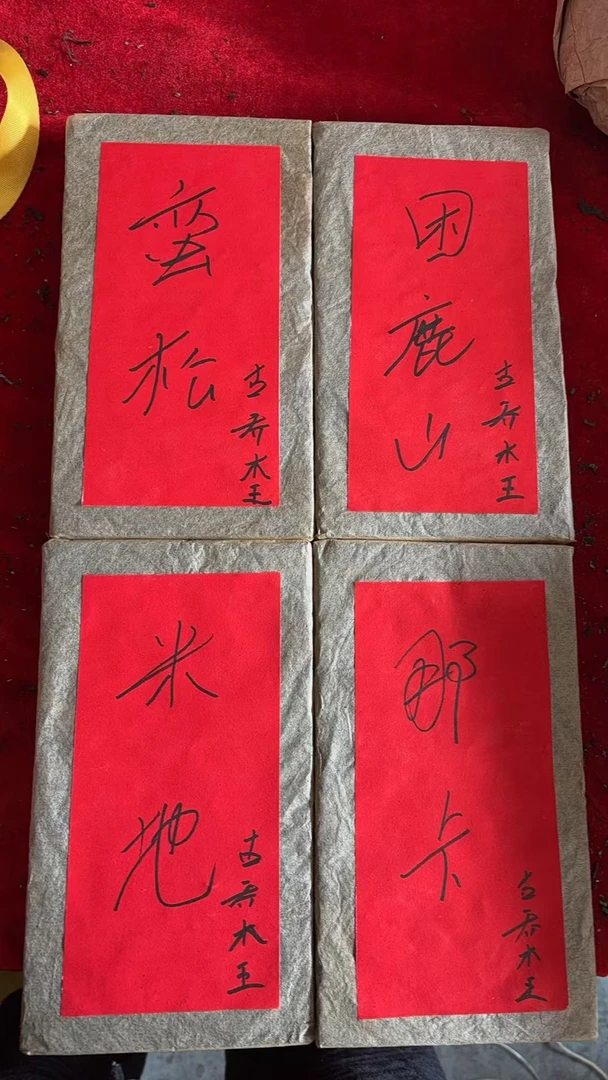 蛮松
古乔木王
困鹿山
古乔木王
米地
古乔木王
那卡
古乔木王